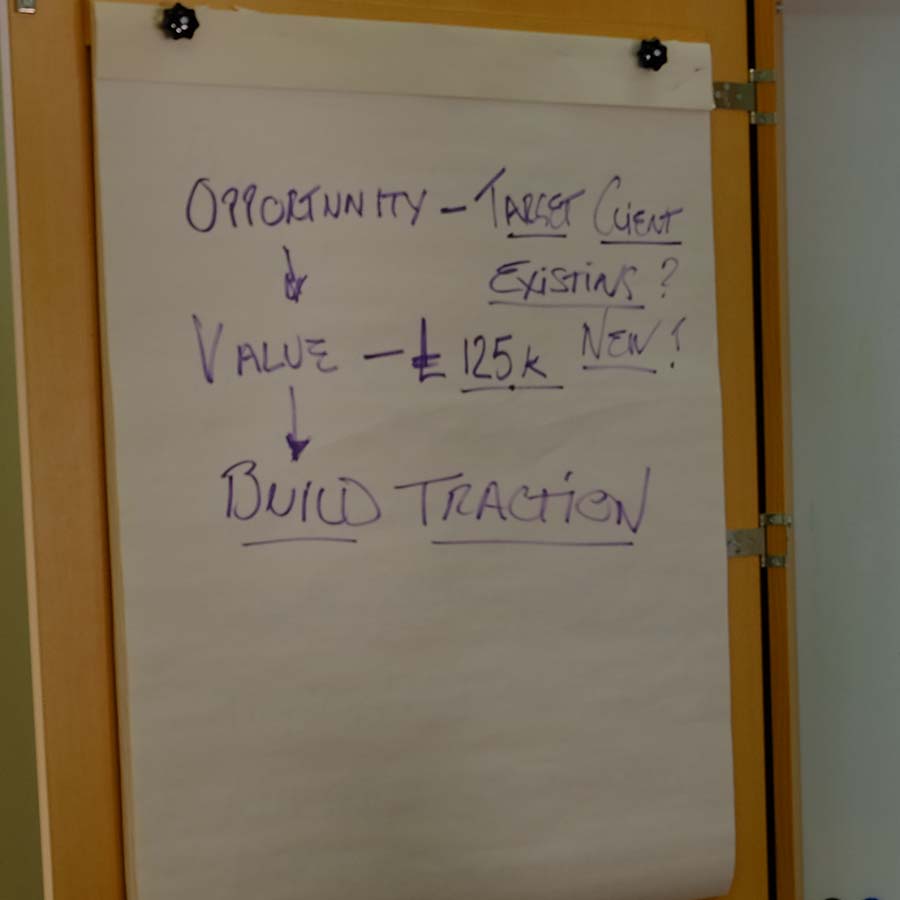 OPPORTUNNITY - TARGET CLIENT
EXISTING?
VALUE - £125k NEW?
BUILD TRACTION